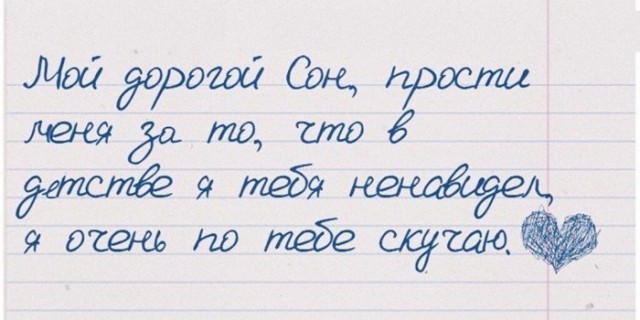 Мой дорогой Сон, прости
меня за то, что в
детстве я тебя ненавидел,
я очень по тебе скучаю.